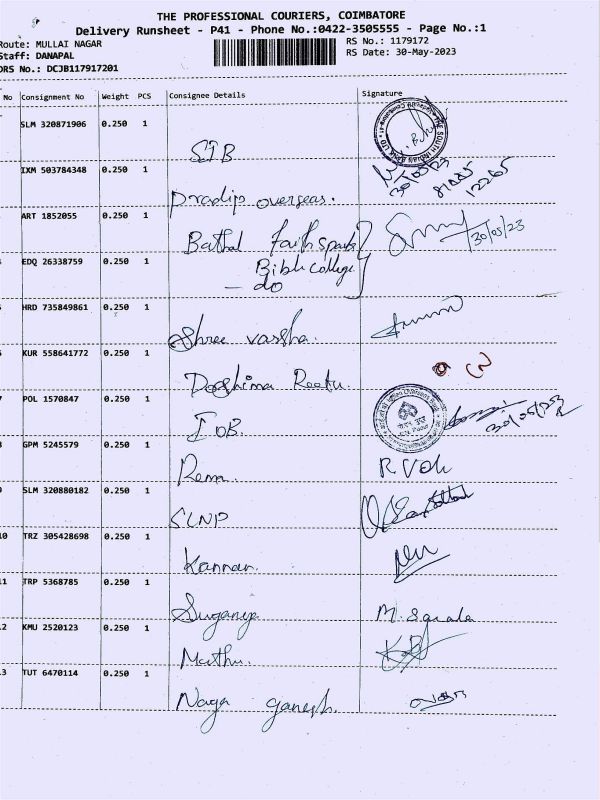 THE PROFESSIONAL COURIERS, COIMBATORE
Delivery Runsheet - P41 - Phone No.:0422-3505555 - Page No.:1
Route: MULLAI NAGAR RS No.: 1179172
Staff: DANAPAL RS Date: 30-May-2023
DRS No.: DCJB117917201
No Consignment No Weight PCS Consignee Details Signature
SLM 320871906 0.250 1
SIB
30/05/23
IXM 503784348 0.250 1
Pradip overseas.
ART 1852055 0.250 1
Bathal Faith spark 30/05/23
EDQ 26338759 0.250 1
Bible college
— do
HRD 735849861 0.250 1
Shree varsha.
KUR 558641772 0.250 1
Doshima Reetu.
POL 1570847 0.250 1
IOB. 30/05/2023
GPM 5245579 0.250 1
Rem. R
SLM 320880182 0.250 1
SLNP
10 TRZ 305428698 0.250 1
Kannan.
11 TRP 5368785 0.250 1
Suganya M.
2 KMU 2520123 0.250 1
Muthu.
3 TUT 6470114 0.250 1
Naga ganesh.